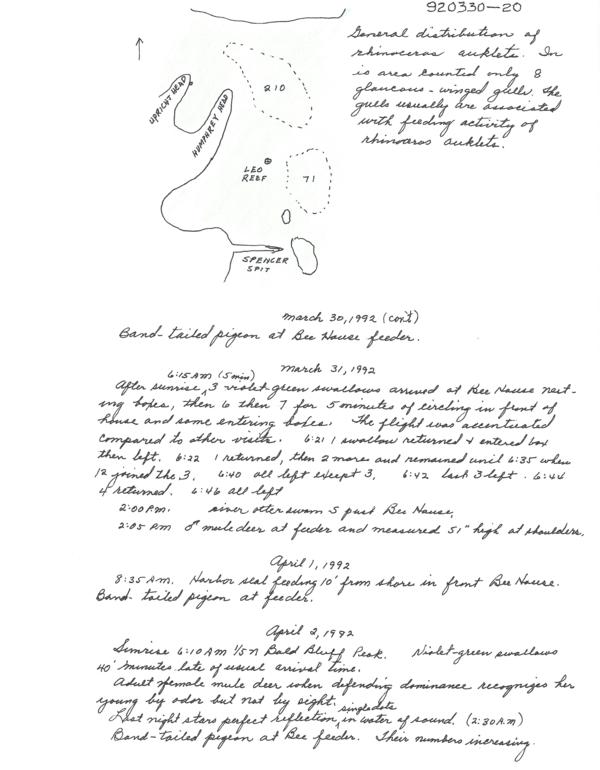 920330-20
General distribution of
rhinoceros auklets. In
is area counted only 8
glaucous-winged gulls. The
gulls usually are associated
with feeding activity of
rhinoceros auklets.
UPRIGHT HEAD
HUMPHREY HEAD
210
LEO
REEF
71
SPENCER
SPIT
March 30, 1992 (con't)
Band-tailed pigeon at Bee House feeder.
March 31, 1992
6:15 AM (5 min)
After sunrise, 3 violet-green swallows arrived at Bee House nest-
ing boxes, then 6 then 7 for 5 minutes of circling in front of
house and some entering boxes. The flight was accentuated
compared to other visits. 6:21 1 swallow returned & entered box
then left. 6:22 1 returned, then 2 more and remained until 6:35 when
12 joined the 3. 6:40 all left except 3. 6:42 last 3 left. 6:44
4 returned. 6:46 all left
2:00 P.M. river otter swam S past Bee House.
2:05 PM ♂ mule deer at feeder and measured 51" high at shoulders.
April 1, 1992
8:35 A.M. Harbor seal feeding 10' from shore in front Bee House.
Band-tailed pigeon at feeder.
April 2, 1992
Sunrise 6:10 AM 1/5 N Bald Bluff Peak. Violet-green swallows
40 minutes late of usual arrival time.
Adult female mule deer when defending dominance recognizes her
young by odor but not by sight.
Last night stars perfect reflection, single dots in water of sound. (2:30 A.M)
Band-tailed pigeon at Bee feeder. Their numbers increasing.